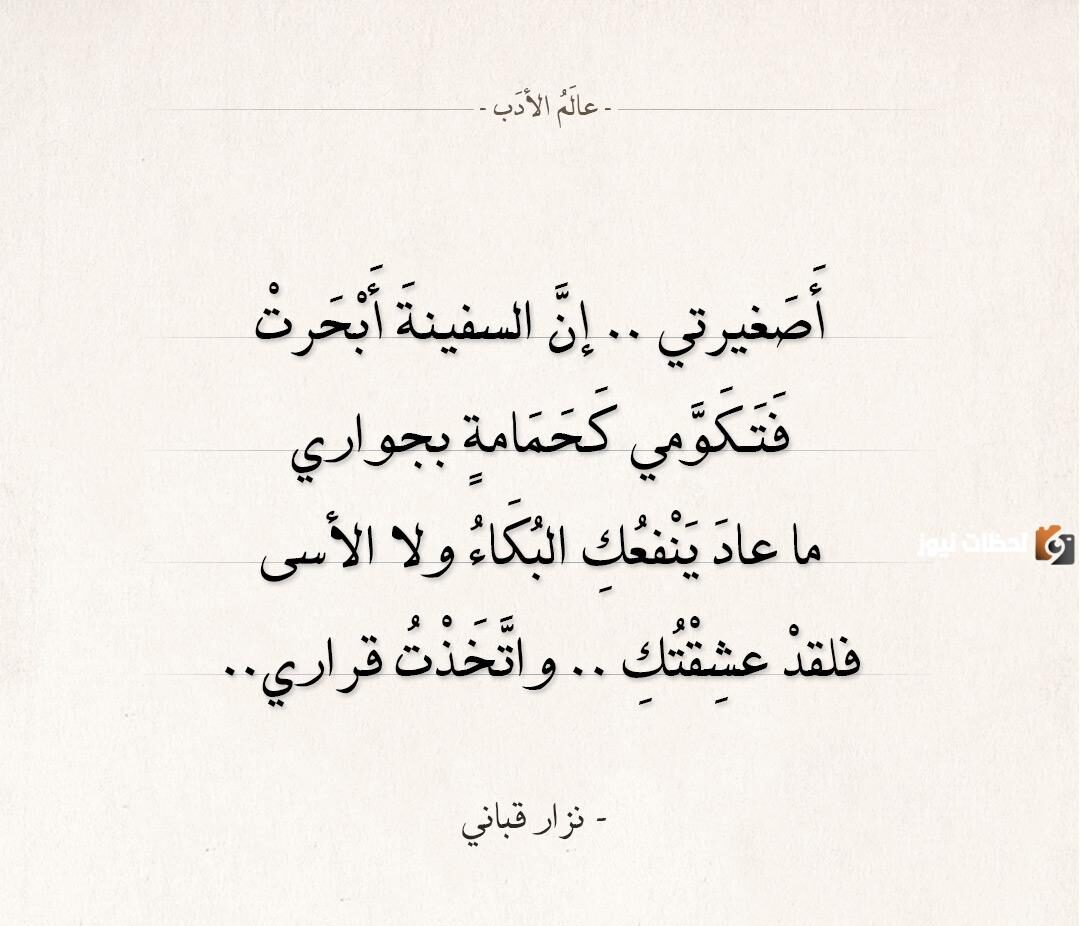 - عالَمُ الأدَب -
أَصَغيرتي .. إنَّ السفينةَ أَبْحَرتْ
فَتَكَوَّمي كَحَمَامةٍ بجواري
ما عادَ يَنْفعُكِ البُكَاءُ ولا الأسى
فلقدْ عشِقْتُكِ .. واتَّخَذْتُ قراري..
لحظات نيوز
- نزار قباني